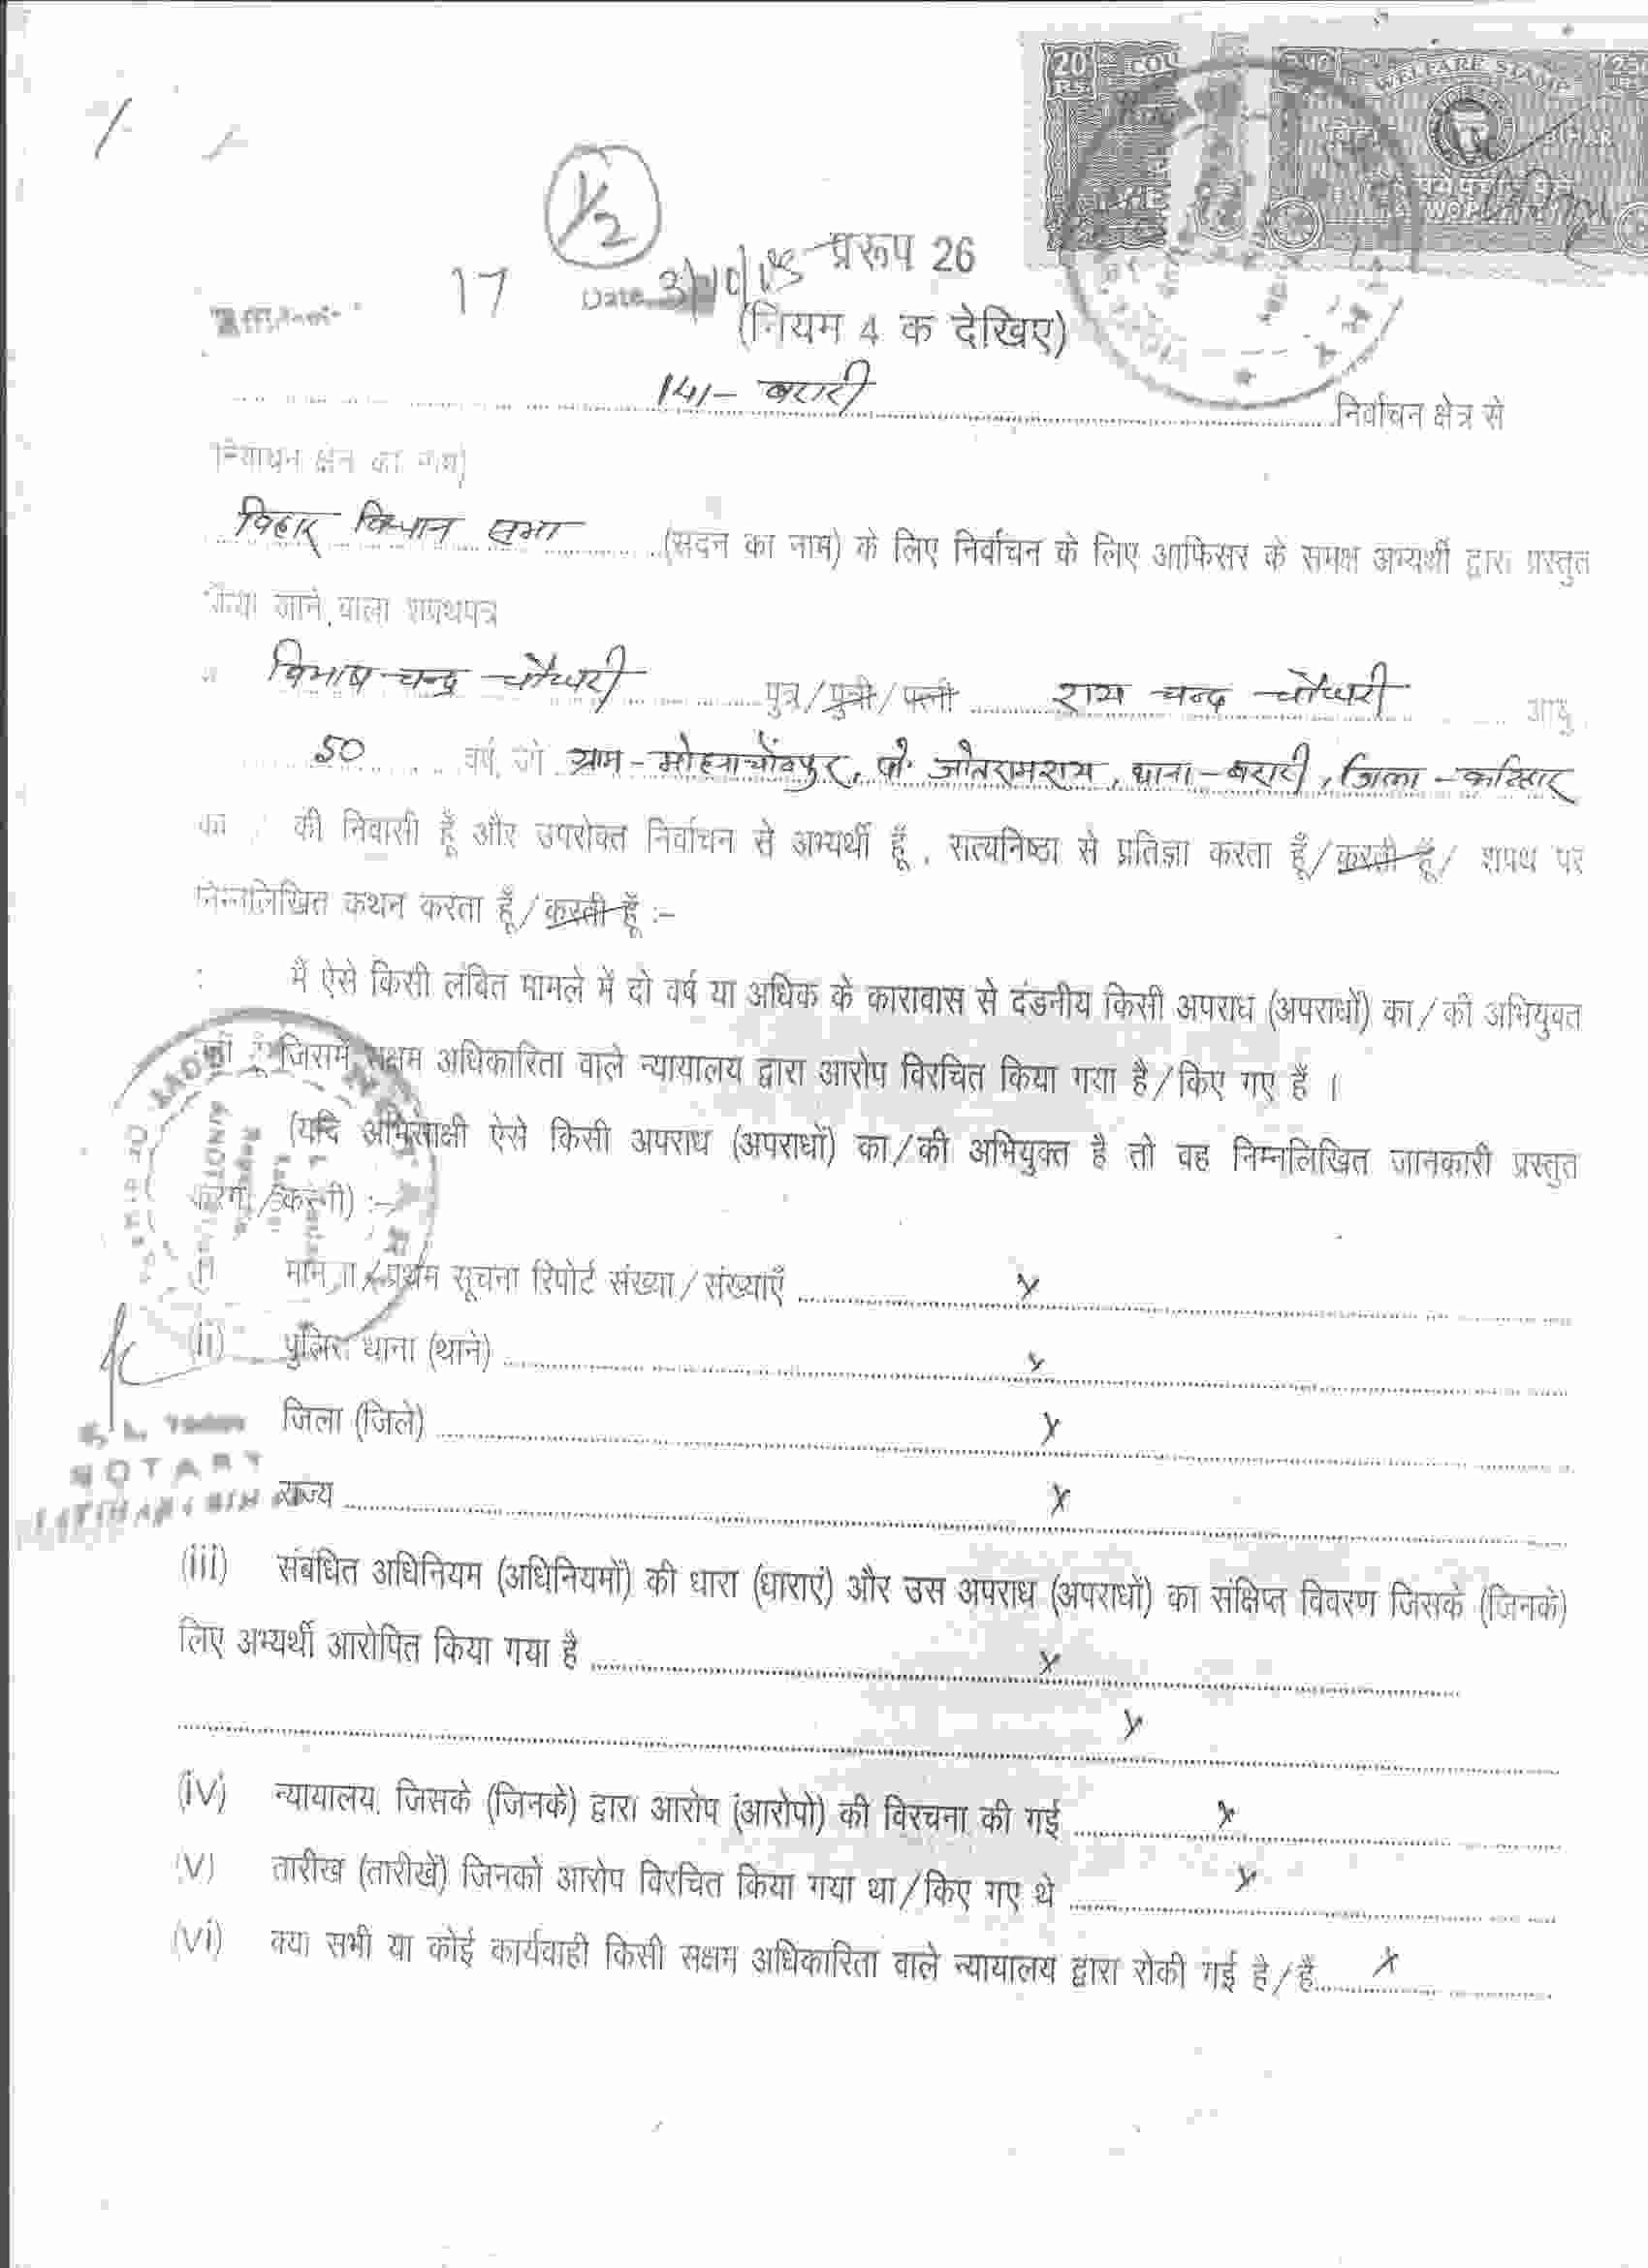 20 RS
COU
WELFARE STAMP
BIHAR
1/2
17 Date 3/10/05 प्ररूप 26
(नियम 4 क देखिए)
141- बरारी निर्वाचन क्षेत्र से
विहार विधान सभा (सदन का नाम) के लिए निर्वाचन के लिए आफिसर के समक्ष अभ्यर्थी द्वारा प्रस्तुत
किया जाने वाला शपथपत्र
विभाष चन्द्र चौधरी पुत्र/पुत्री/पत्नी राय चन्द्र चौधरी आयु
50 वर्ष, जो ग्राम-मोहनाचाँदपुर, पो० जौतरामराय, थाना-बरारी, जिला-कटिहार
का / की निवासी हूँ और उपरोक्त निर्वाचन से अभ्यर्थी हूँ, सत्यनिष्ठा से प्रतिज्ञा करता हूँ/करती हूँ/ शपथ पर
निम्नलिखित कथन करता हूँ/करती हूँ :–
मैं ऐसे किसी लंबित मामले में दो वर्ष या अधिक के कारावास से दंडनीय किसी अपराध (अपराधों) का/की अभियुक्त
जिसमें सक्षम अधिकारिता वाले न्यायालय द्वारा आरोप विरचित किया गया है/किए गए हैं ।
(यदि अभिसाक्षी ऐसे किसी अपराध (अपराधों) का/की अभियुक्त है तो वह निम्नलिखित जानकारी प्रस्तुत
करेगा/करेगी) :–
(i) मामला/प्रथम सूचना रिपोर्ट संख्या/संख्याएँ x
(ii) पुलिस थाना (थाने) x
जिला (जिले) x
राज्य x
NOTARY
(iii) संबंधित अधिनियम (अधिनियमों) की धारा (धाराएं) और उस अपराध (अपराधों) का संक्षिप्त विवरण जिसके (जिनके)
लिए अभ्यर्थी आरोपित किया गया है x
x
(iv) न्यायालय जिसके (जिनके) द्वारा आरोप (आरोपों) की विरचना की गई x
(v) तारीख (तारीखें) जिनको आरोप विरचित किया गया था/किए गए थे x
(vi) क्या सभी या कोई कार्यवाही किसी सक्षम अधिकारिता वाले न्यायालय द्वारा रोकी गई है/हैं x